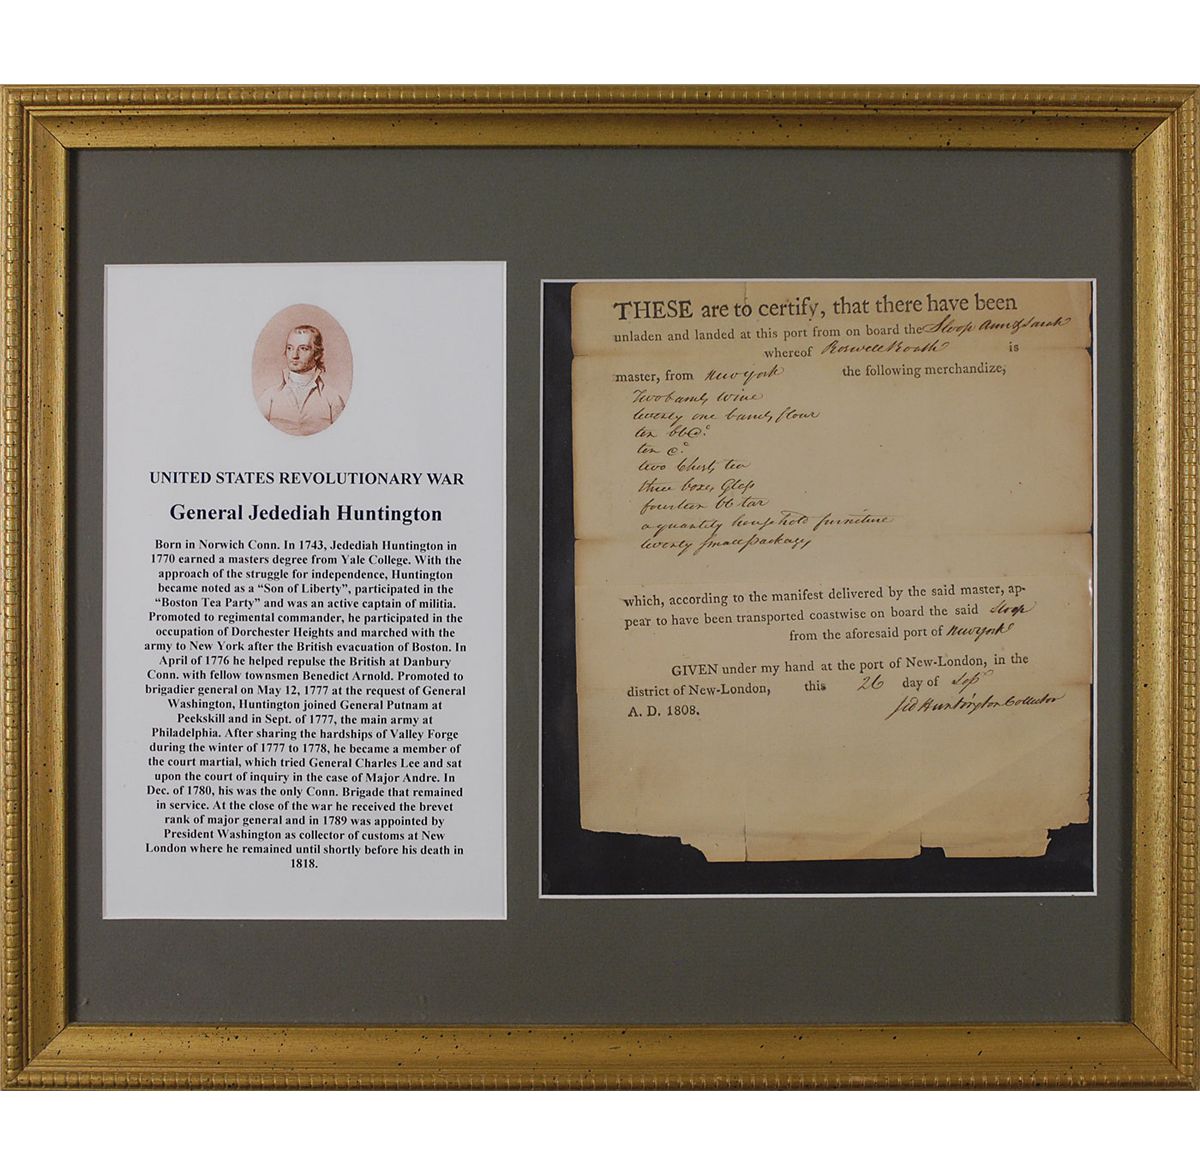 UNITED STATES REVOLUTIONARY WAR
General Jedediah Huntington
Born in Norwich Conn. In 1743, Jedediah Huntington in
1770 earned a masters degree from Yale College. With the
approach of the struggle for independence, Huntington
became noted as a “Son of Liberty”, participated in the
“Boston Tea Party” and was an active captain of militia.
Promoted to regimental commander, he participated in the
occupation of Dorchester Heights and marched with the
army to New York after the British evacuation of Boston. In
April of 1776 he helped repulse the British at Danbury
Conn. with fellow townsmen Benedict Arnold. Promoted to
brigadier general on May 12, 1777 at the request of General
Washington, Huntington joined General Putnam at
Peekskill and in Sept. of 1777, the main army at
Philadelphia. After sharing the hardships of Valley Forge
during the winter of 1777 to 1778, he became a member of
the court martial, which tried General Charles Lee and sat
upon the court of inquiry in the case of Major Andre. In
Dec. of 1780, his was the only Conn. Brigade that remained
in service. At the close of the war he received the brevet
rank of major general and in 1789 was appointed by
President Washington as collector of customs at New
London where he remained until shortly before his death in
1818.
THESE are to certify, that there have been
unladen and landed at this port from on board the Sloop Ann & Sarah
whereof Roswell Roath is
master, from New York the following merchandize,
Two barrels wine
twenty one barrels flour
ten
ten
two Chests tea
three boxes Glass
fourteen bb tar
a quantity household furniture
twenty small packages
which, according to the manifest delivered by the said master, ap-
pear to have been transported coastwise on board the said Sloop
from the aforesaid port of New York
GIVEN under my hand at the port of New-London, in the
district of New-London, this 26 day of Sep
A. D. 1808.
Jed Huntington Collector